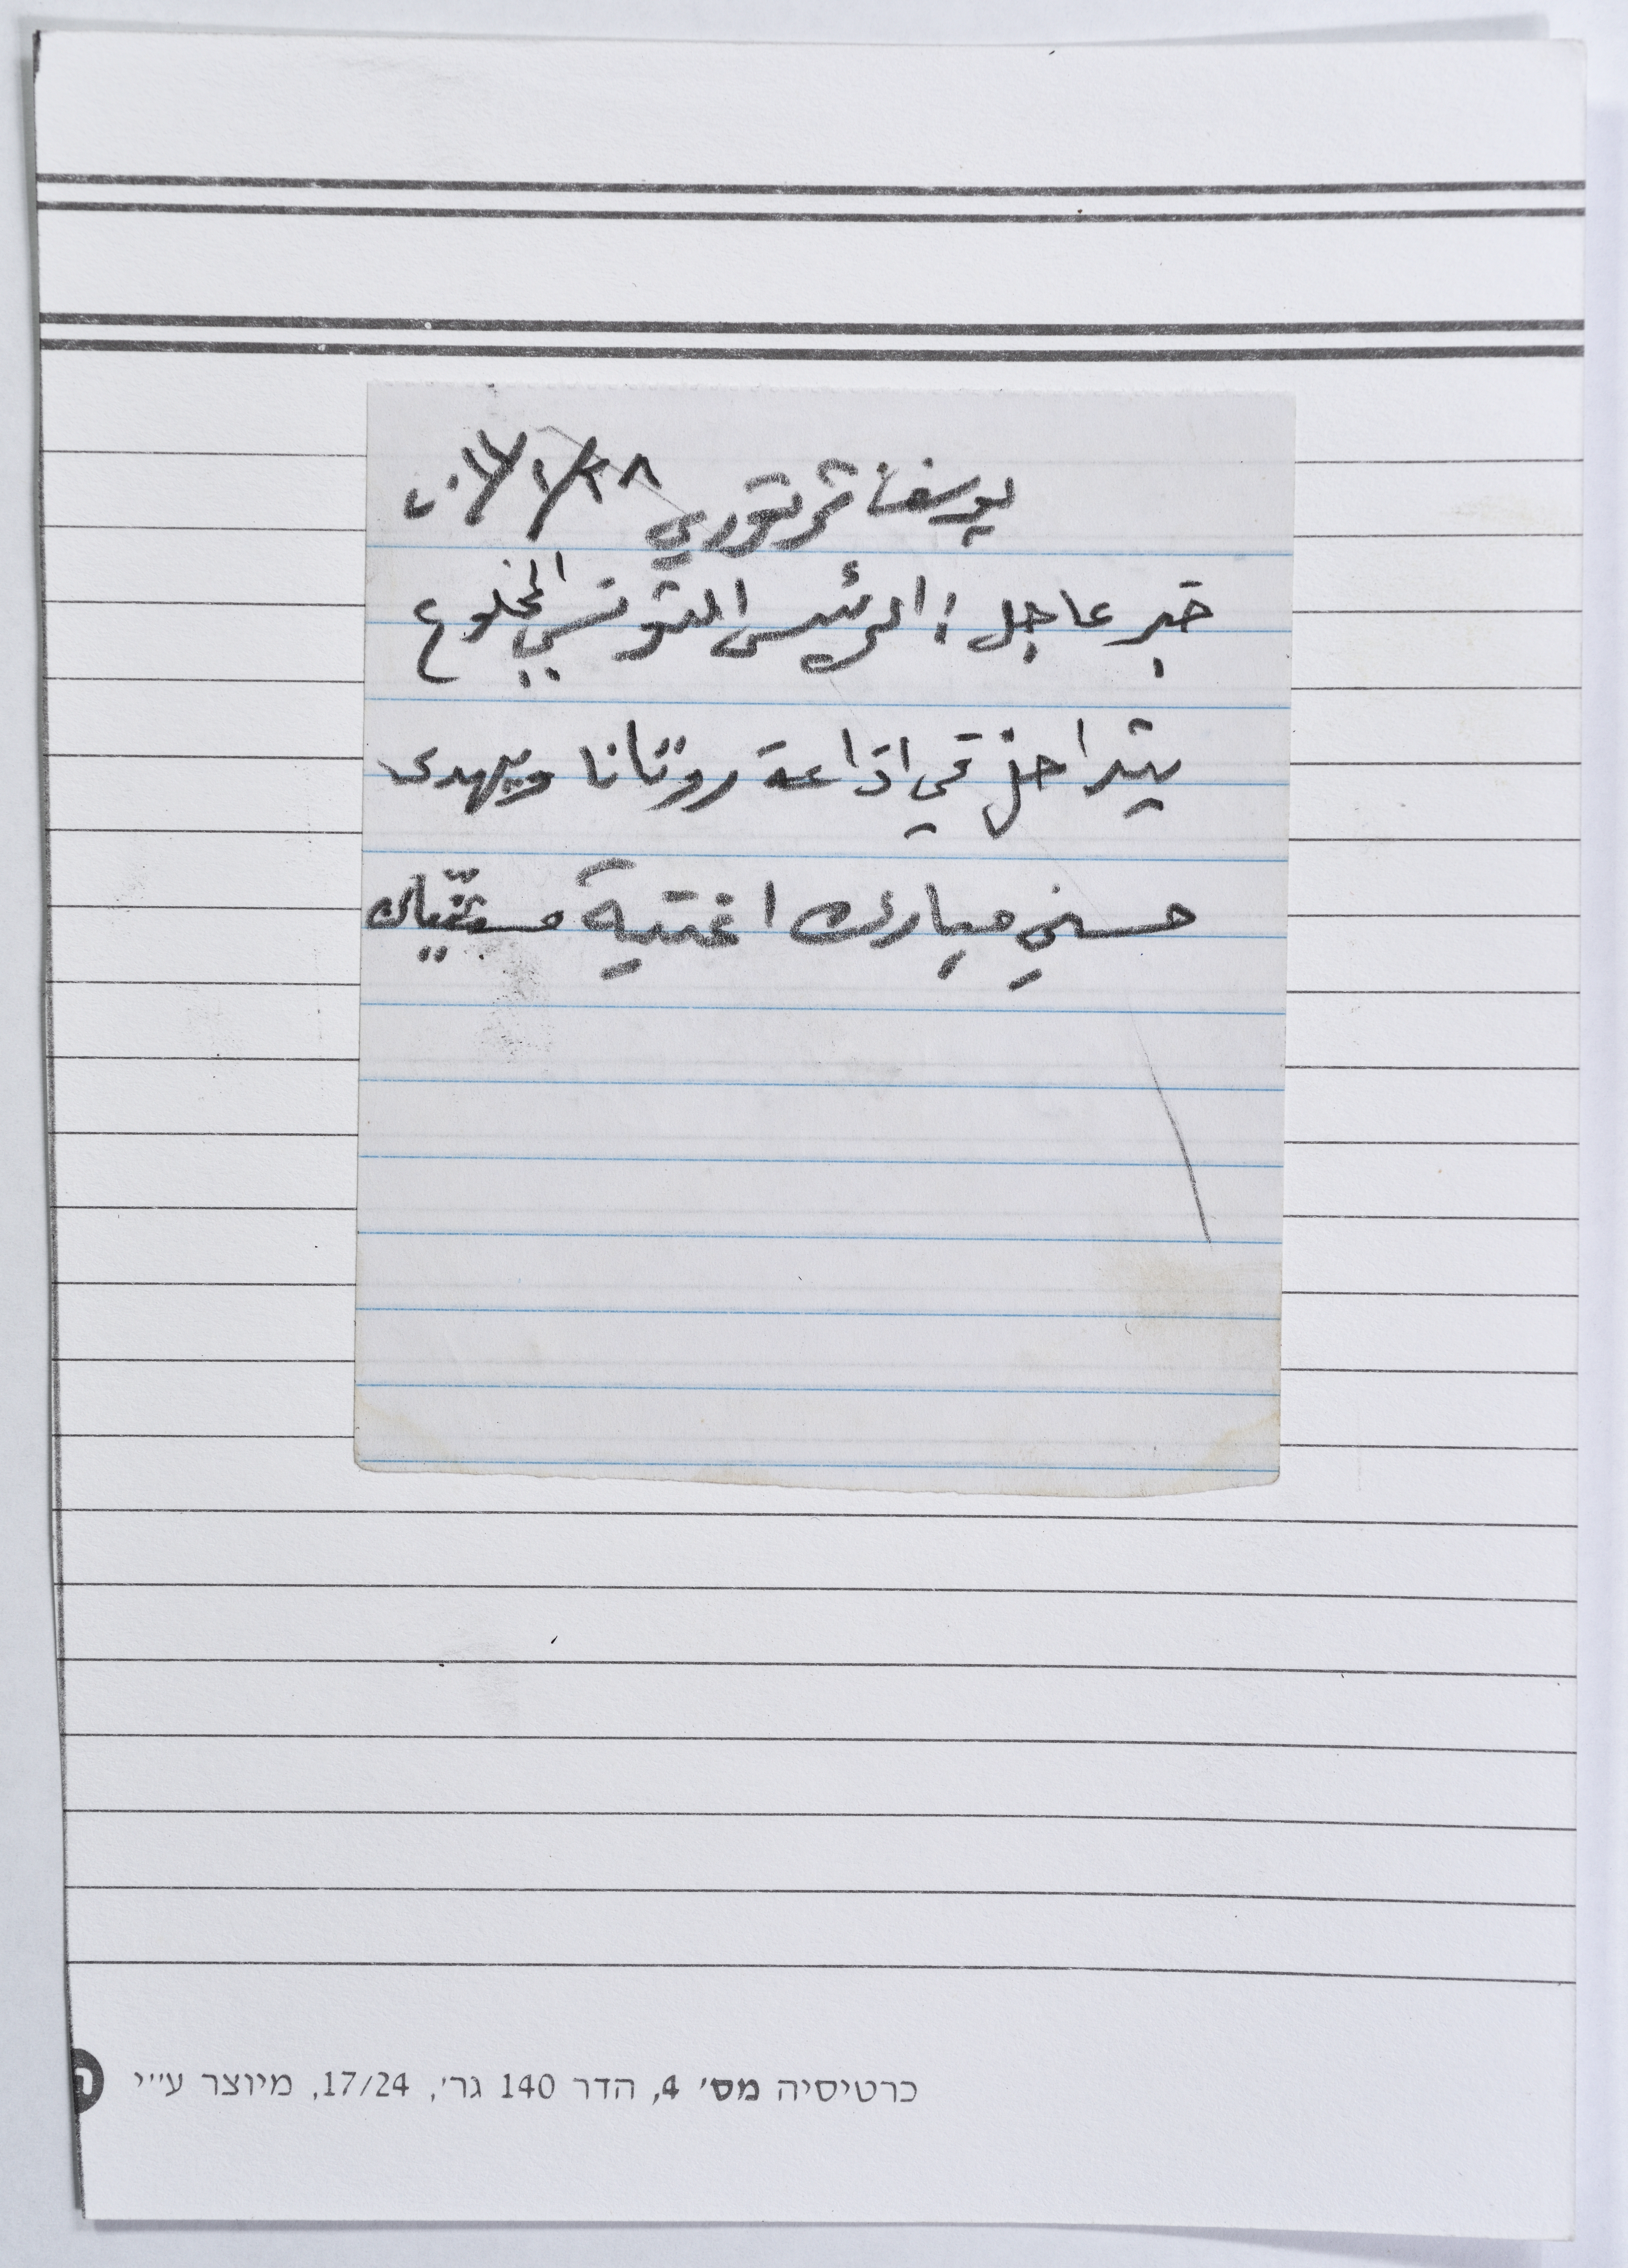 يوسف شرقوري ٢٨/١/٢٠١١
خبر عاجل: الرئيس التونسي المخلوع
يتداخل في اذاعة روتانا ويهدى
حسني مبارك اغنية مستنياك
כרטיסיה מס' 4, הדר 140 גר', 17/24, מיוצר ע"י